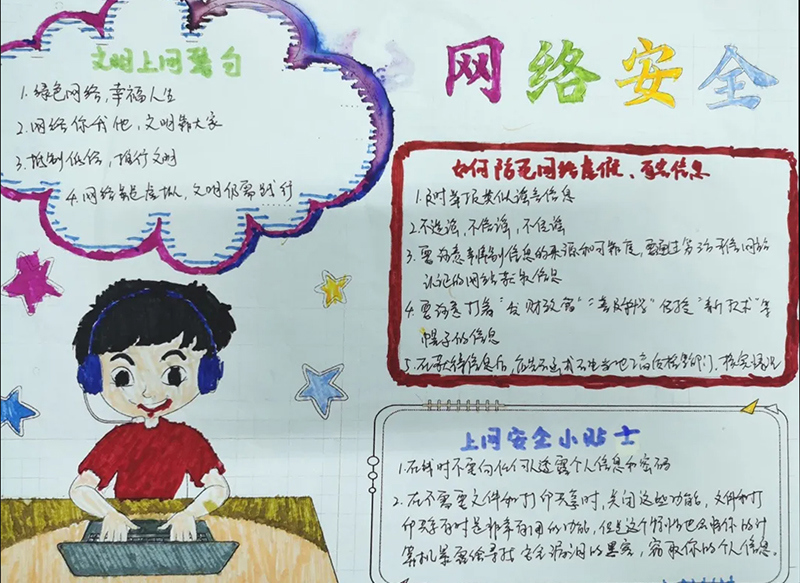 网络安全
文明上网警句
1.绿色网络,幸福人生
2.网络你我他,文明靠大家
3.抵制低俗,推行文明
4.网络虽是虚拟,文明仍需践行
如何防范网络虚假、有害信息
1.及时举报类似谣言信息
2.不造谣,不信谣,不传谣
3.要注意辨别信息的来源和可靠度,要通过
认证的网站获取信息
4.要注意打着"发财致富""普及科学"传授"新技术"等
幌子的信息
5.在获得信息后,
上网安全小贴士
1.在线时不要向任何人透露个人信息和密码
2.在不需要文件和打印共享时,关闭这些功能,文件和打
印共享有时是非常有用的功能,但是这个特性也会将你的计
算机暴露给寻找安全漏洞的黑客,窃取你的个人信息。